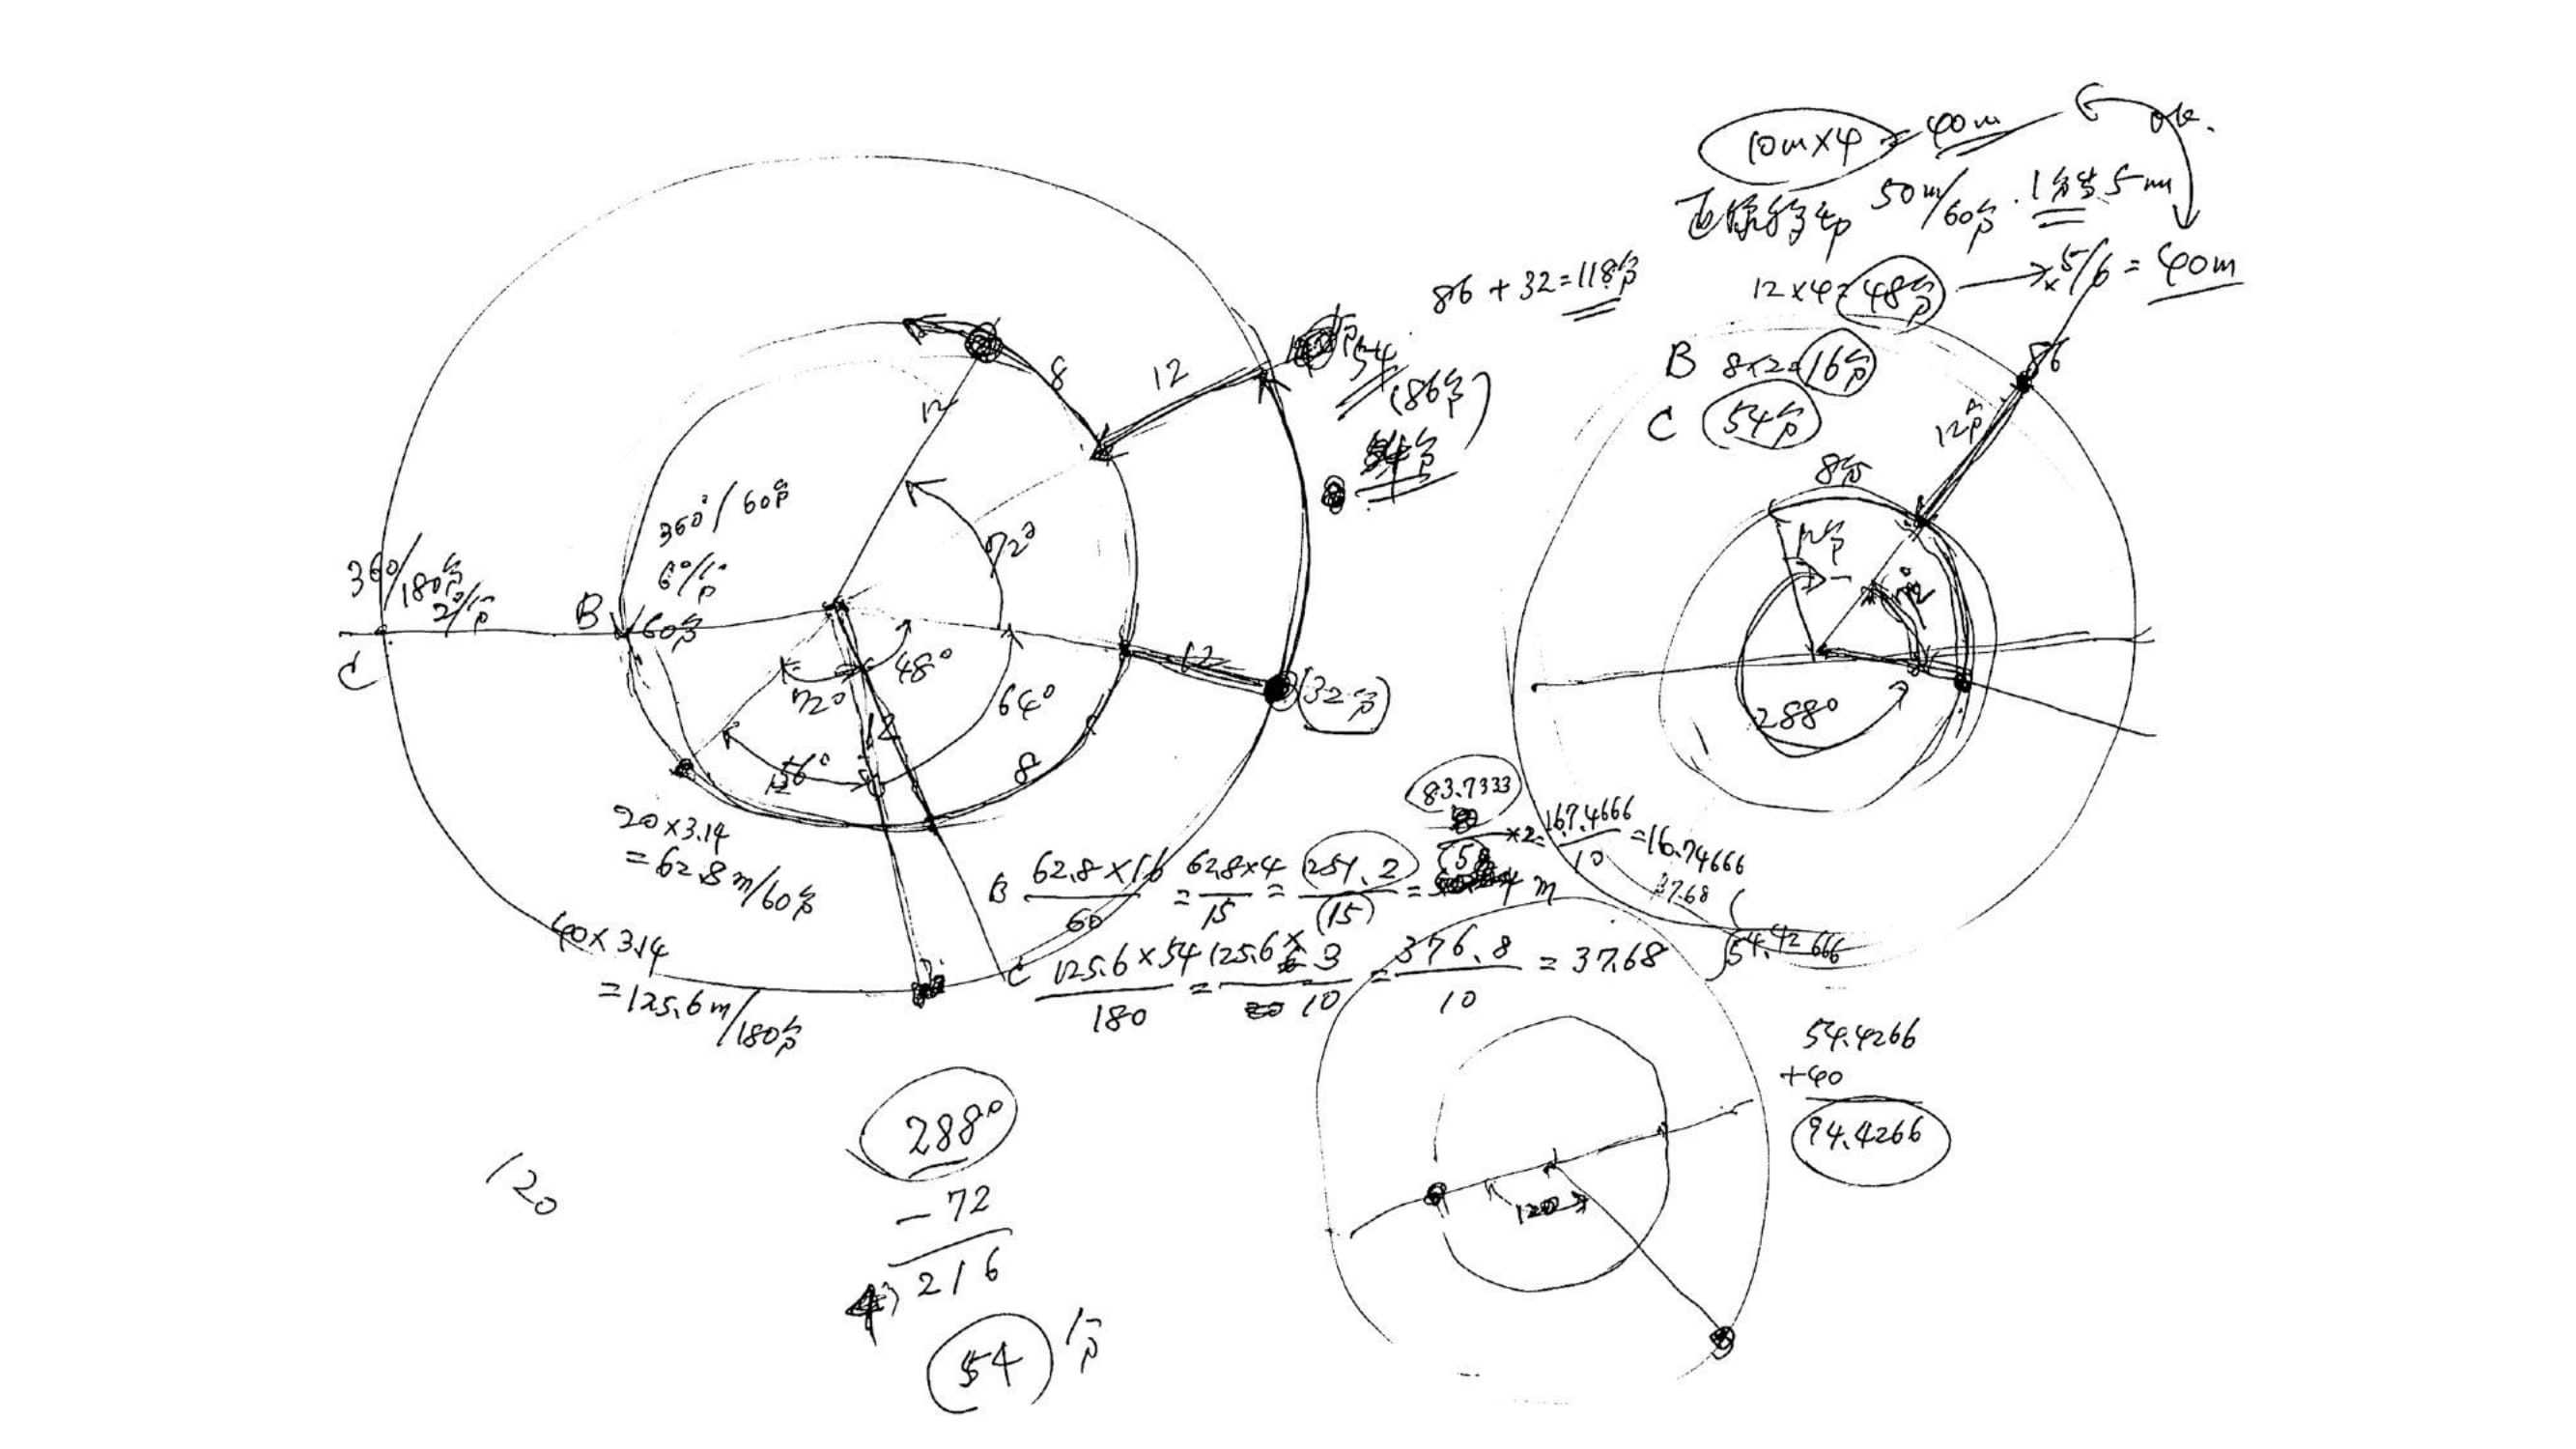 10m×4 = 40m
ok.
直線移動 50m/60分 . 1分当 5m
12×4=48分 → ×5/6 = 40m
86 + 32 = 118分
B 8×2=16分
C 54分
54
(86分)
12
8
12
86
12分
8分
12分
360°/60分
6°/分
72°
360/180分
2°/分
B
60分
C
48°
72°
64°
12
(32分)
56°
12
8
288°
20×3.14
=62.8m/60分
40×3.14
=125.6m/180分
83.7333
×2=
167.4666
10
=16.74666
B 62.8×16
60
= 62.8×4
15
= 251.2
(15)
=
m
37.68
54.42666
C 125.6×54
180
= 125.6×3
10
= 376.8
10
= 37.68
54.4266
+40
94.4266
120
288°
-72
4)216
54分
120